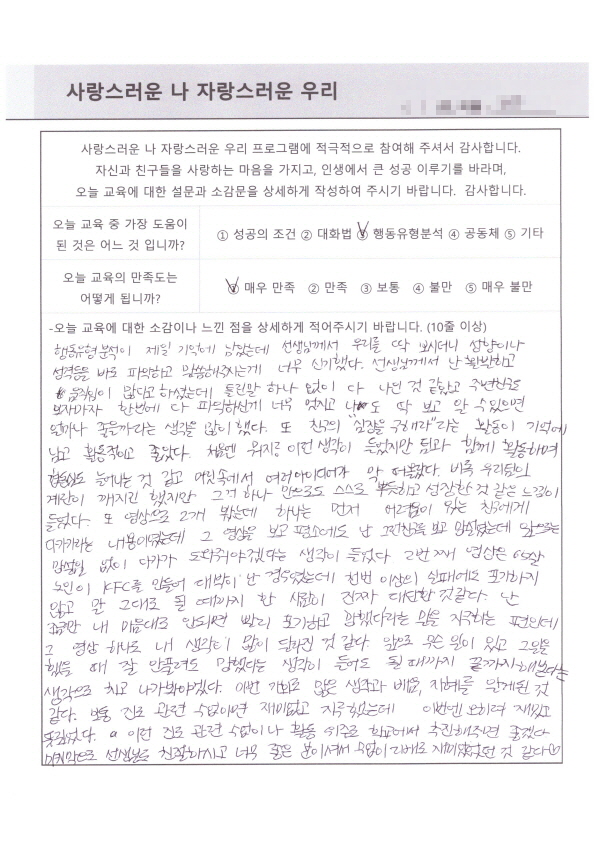 사랑스러운 나 자랑스러운 우리
사랑스러운 나 자랑스러운 우리 프로그램에 적극적으로 참여해 주셔서 감사합니다.
자신과 친구들을 사랑하는 마음을 가지고, 인생에서 큰 성공 이루기를 바라며,
오늘 교육에 대한 설문과 소감문을 상세하게 작성하여 주시기 바랍니다. 감사합니다.
오늘 교육 중 가장 도움이
된 것은 어느 것 입니까?
① 성공의 조건 ② 대화법 ③ 행동유형분석 ④ 공동체 ⑤ 기타
오늘 교육의 만족도는
어떻게 됩니까?
① 매우 만족 ② 만족 ③ 보통 ④ 불만 ⑤ 매우 불만
-오늘 교육에 대한 소감이나 느낀 점을 상세하게 적어주시기 바랍니다. (10줄 이상)
행동유형 분석이 제일 기억에 남았는데 선생님께서 우리를 딱 보시더니 성향이나
성격등을 바로 파악하고 말씀해주시는게 너무 신기했다. 선생님께서 난 활발하고
움직임이 많다고 하셨는데 틀린말 하나 없이 다 나인 것 같았고 주변친구도
보자마자 한번에 다 파악하신게 너무 멋지고 나도 딱 보고 알 수 있으면
얼마나 좋을까라는 생각을 많이 했다. 또 친구의 심장을 구해라"라는 활동이 기억에
남고 활동적이고 좋았다. 처음엔 뭐지 이런 생각이 들었지만 팀과 함께 활동하며
협동심도 늘어나는 것 같고 머릿속에서 여러아이디어가 막 떠올랐다. 비록 우리팀의
계란이 깨지긴 했지만 그거 하나 만으로도 스스로 뿌듯하고 성장한 것 같은 느낌이
들었다. 또 영상으로 2개 봤는데 하나는 먼저 어려움이 있는 친구에게
다가가라는 내용이였는데 그 영상을 보고 평소에도 난 그런친구를 보고 망설였는데 앞으로는
망설임 없이 다가가 도와줘야겠다는 생각이 들었다. 2번째 영상은 65살
노인이 KFC를 만들어 대박이 난 경우였는데 천번 이상의 실패에도 포기하지
않고 말 그대로 될 때까지 한 사람이 진짜 대단한것같다. 난
조금만 내 마음대로 안되면 빨리 포기하고 망했다라는 말을 자주하는 편인데
그 영상 하나로 내 생각이 많이 달라진 것 같다. 앞으로 무슨 일이 있고 그 일을
했을 때 잘 안풀려도 망했다는 생각이 들어도 될 때까지 끝까지 해본다는
생각으로 치고 나가봐야겠다. 이번 기회로 많은 생각과 배움, 지혜를 얻게된 것
같다. 보통 진로 관련 수업이면 재미없고 지루했는데 이번엔 오히려 재밌고
뜻깊었다. 이런 진로 관련 수업이나 활동 위주로 학교에서 추진해주면 좋겠다
마지막으로 선생님도 친절하시고 너무 좋은 분이셔서 수업이 더 재미있었던 것 같다♡